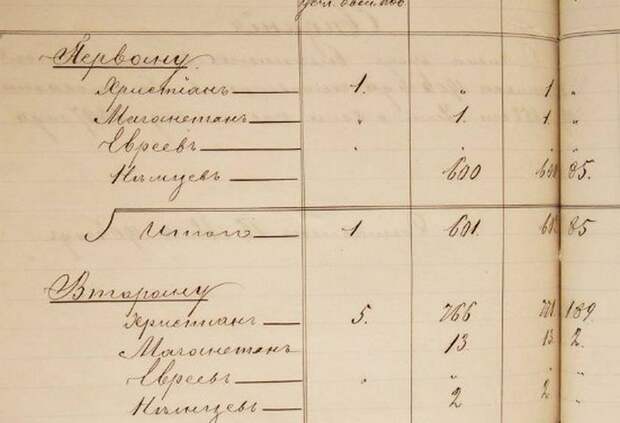 Первому
Христіанъ — 1. „ 1 „
Магометанъ — „ 1. 1. „
Евреевъ — „ „ „
Нѣмцевъ — 600 600 85.
Итого — 1. 601. 602 85
Второму
Христіанъ — 5. 766 771 189.
Магометанъ 13. 13. 2.
Евреевъ — „ „ „ „
Нѣмцевъ — 2 2 „